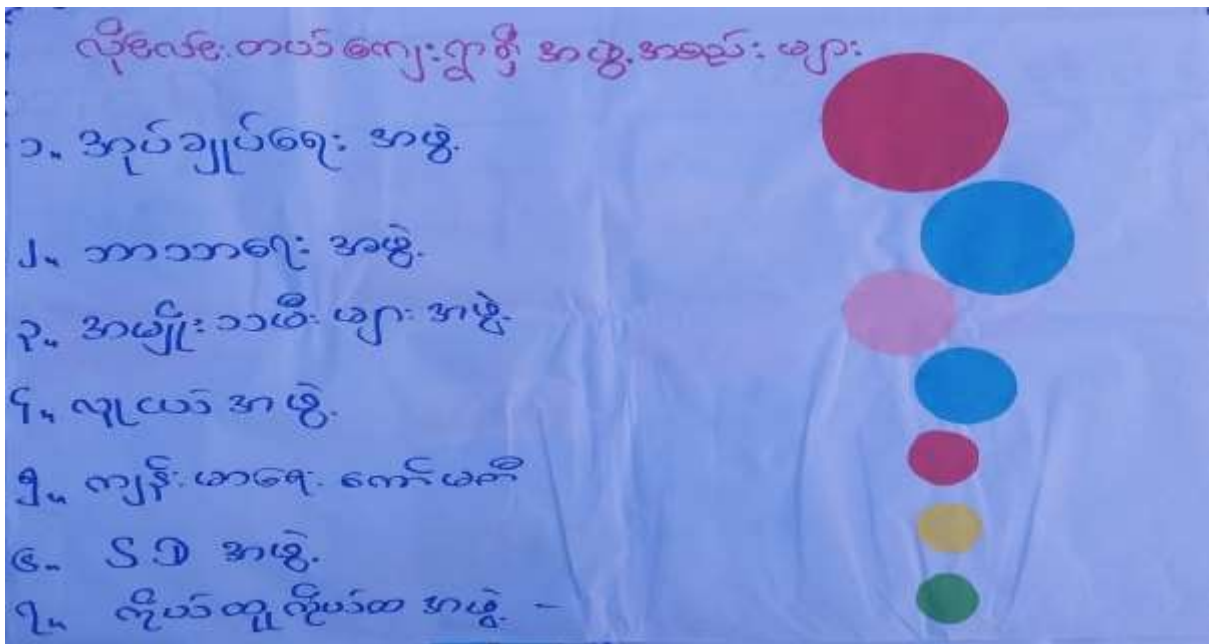 လိုင်လင်းတယ် ကျေးရွာရှိ အဖွဲ့အစည်းများ
၁။ အုပ်ချုပ်ရေး အဖွဲ့
၂။ ဘာသာရေး အဖွဲ့
၃။ အမျိုးသမီးများ အဖွဲ့
၄။ လူငယ် အဖွဲ့
၅။ ကျန်းမာရေး ကော်မတီ
၆။ S D အဖွဲ့
၇။ ကိုယ်ထူကိုယ်ထ အဖွဲ့ -